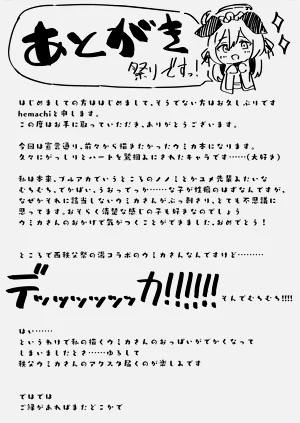 あとがき
祭りですっ!
はじめましての方ははじめまして、そうでない方はお久しぶりです
hemachiと申します。
この度はお手に取っていただき、ありがとうございます。
今回は宣言通り、前々から描きたかったウミカ本になります。
久々にがっしりとハートを鷲掴みにされたキャラです……(大好き)
私は本来、ブルアカでいうところのノノミとかユメ先輩みたいな
むちむち、でかぱい、うおでっか……な子が性癖のはずなんですが、
なぜかそれに該当しないウミカさんがぶっ刺さり、とても不思議に
思ってます。おそらく清楚な感じの子も好きなのでしょう
ウミカさんのおかげで気がつくことができました。おめでとう!
ところで西秩父祭の湯コラボのウミカさんなんですけど………
デッッッッッッカ!!!!!!
そんでむちむち!!!!
はい……
というわけで私の描くウミカさんのおっぱいがでかくなって
しまいましたとさ……ゆるして
秩父ウミカさんのアクスタ届くのが楽しみです
ではでは
ご縁があればまたどこかで